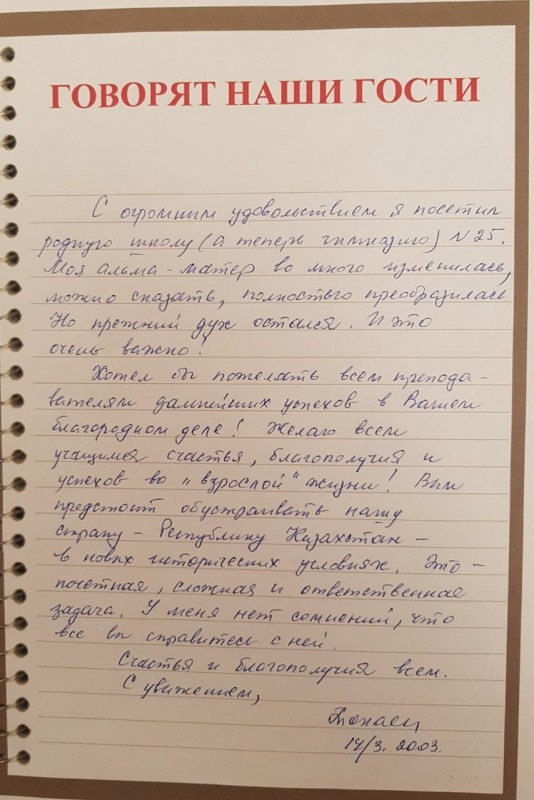 ГОВОРЯТ НАШИ ГОСТИ
С огромным удовольствием я посетил
родную школу (а теперь гимназию) N 25.
Моя альма-матер во много изменилась,
можно сказать, полностью преобразилась.
Но прежний дух остался. И это
очень важно!
Хотел бы пожелать всем препода-
вателям дальнейших успехов в Вашем
благородном деле! Желаю всем
учащимся счастья, благополучия и
успехов во "взрослой" жизни! Вам
предстоит обустраивать нашу
страну - Республику Казахстан -
в новых исторических условиях. Это -
почетная, сложная и ответственная
задача. У меня нет сомнений, что
все вы справитесь с ней.
Счастья и благополучия всем.
С уважением,
Токаев
14/3. 2003.